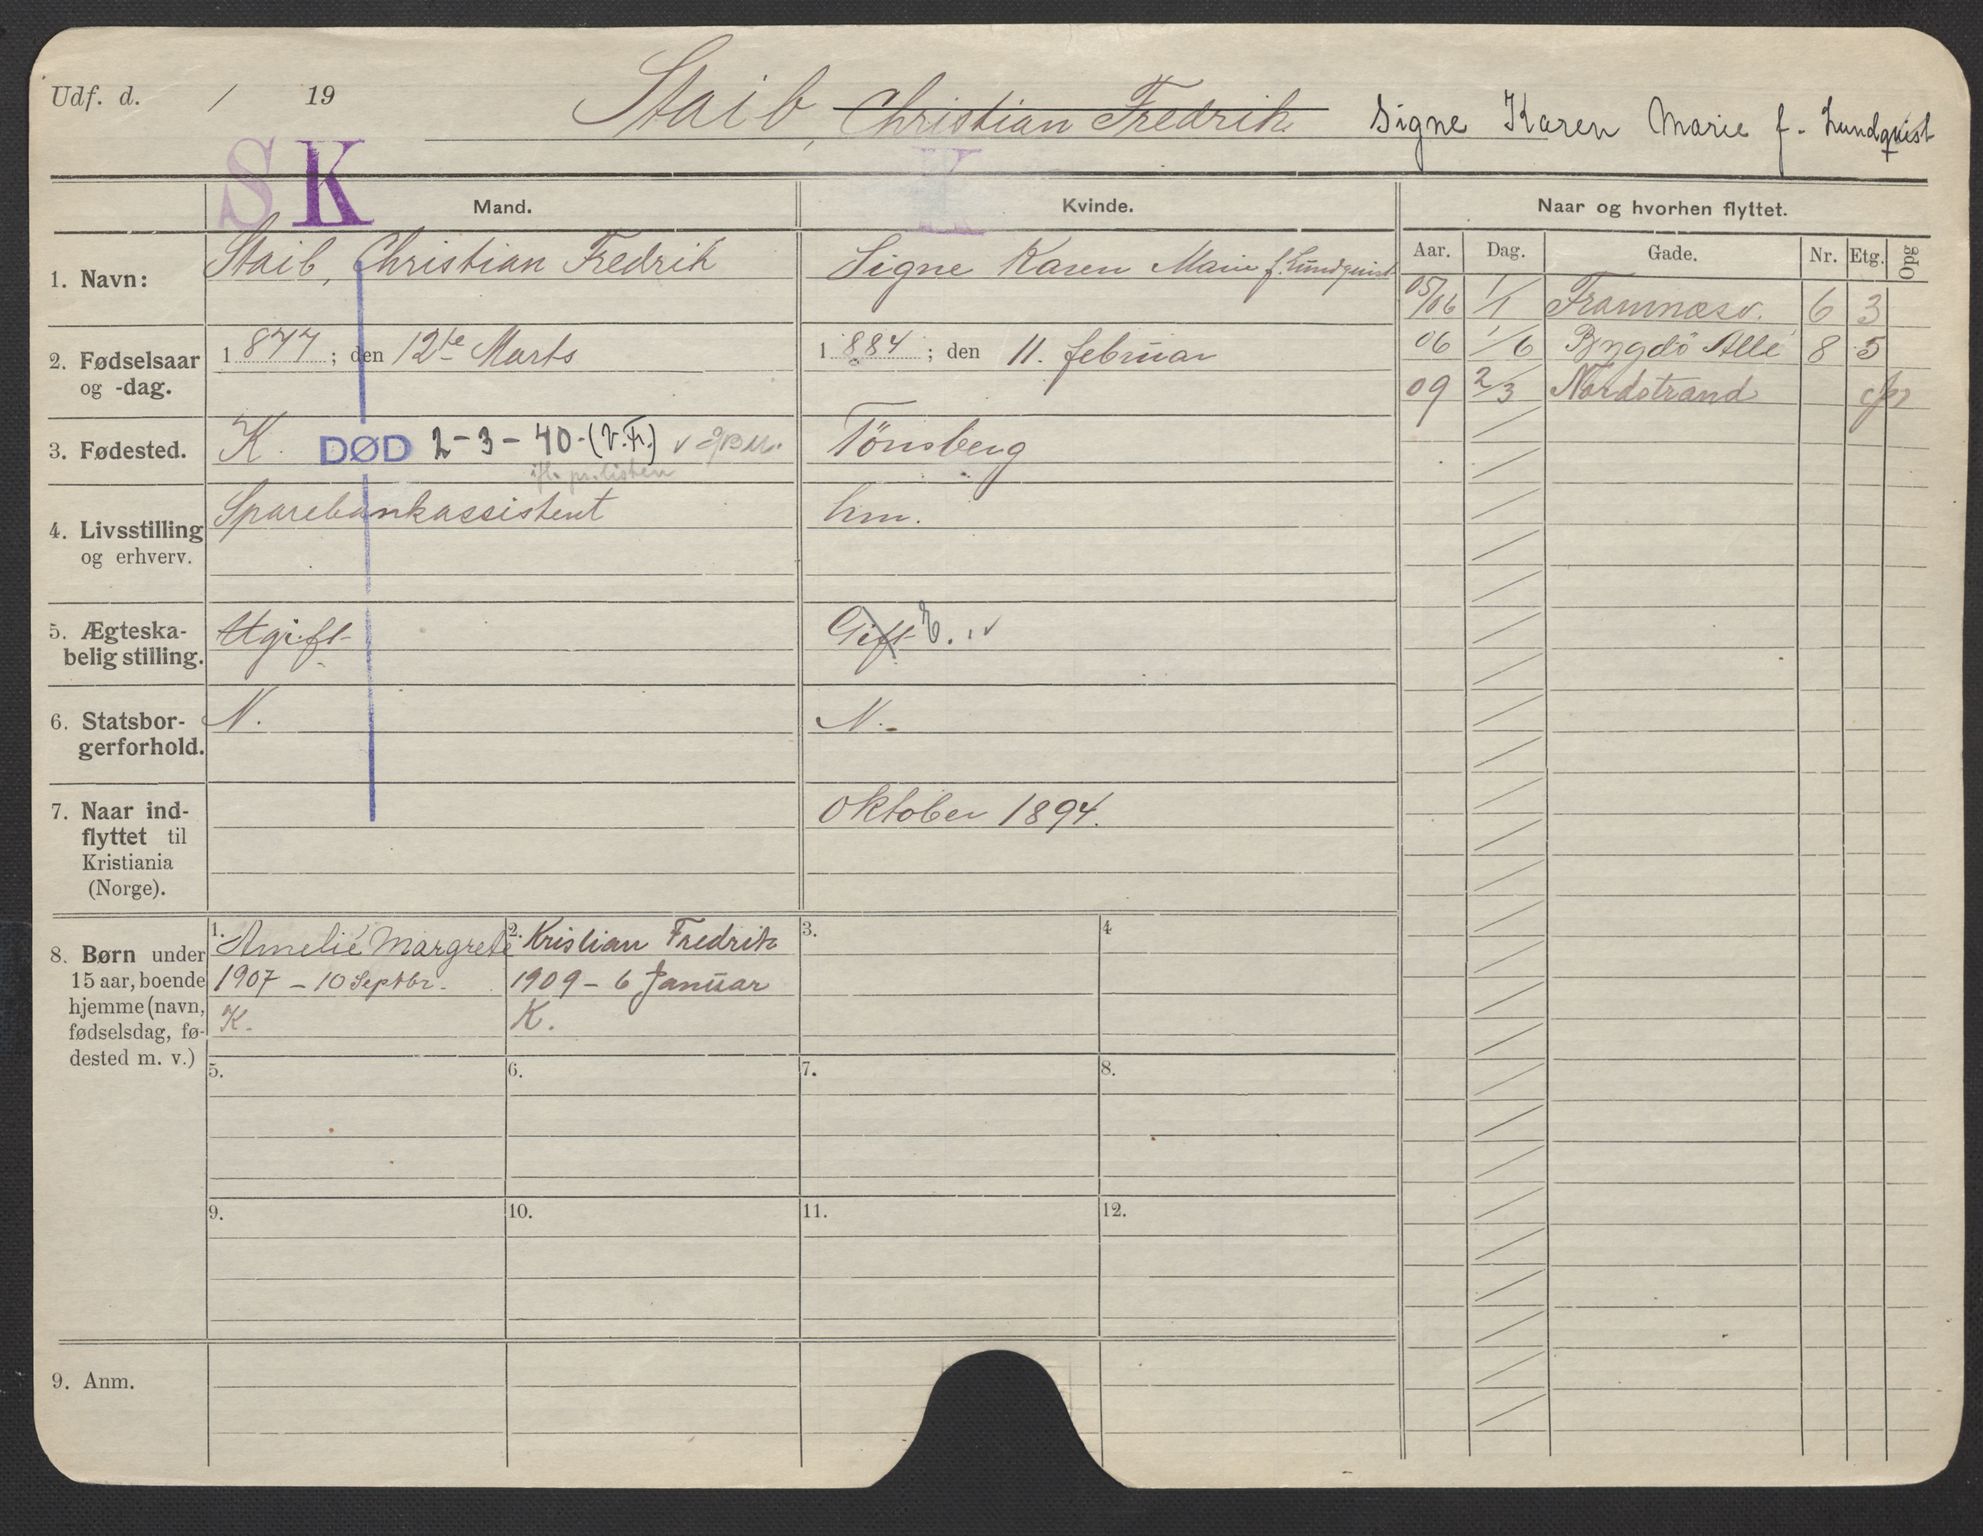 Udf. d. / 19
Staib, Christian Fredrik Signe Karen Marie f. Lundquist
S K K
Mand. Kvinde. Naar og hvorhen flyttet.
Aar. Dag. Gade. Nr. Etg. Opg
1. Navn: Staib, Christian Fredrik Signe Karen Marie f. Lundquist
05/06 1/1 Framnæsv. 6 3
2. Fødselsaar og -dag. 1877; den 12te Marts 1884; den 11. februar
06 1/6 Bygdö Allé 8 5
09 2/3 Nordstrand
3. Fødested. K. DØD 2-3-40-(V.Fr.) v Tönsberg
ifl. pr.listen
4. Livsstilling og erhverv. Sparebankassistent hm.
5. Ægteska-
belig stilling. Ugift Gift E. v
6. Statsbor-
gerforhold. N. N.
7. Naar ind-
flyttet til
Kristiania
(Norge). Oktober 1894.
8. Børn under
15 aar, boende
hjemme (navn,
fødselsdag, fø-
dested m. v.)
1. Amelie Margrete
1907 - 10 Septbr.
K.
2. Kristian Fredrik
1909 - 6 Januar
K.
3. 4
5. 6. 7. 8.
9. 10. 11. 12.
9. Anm.